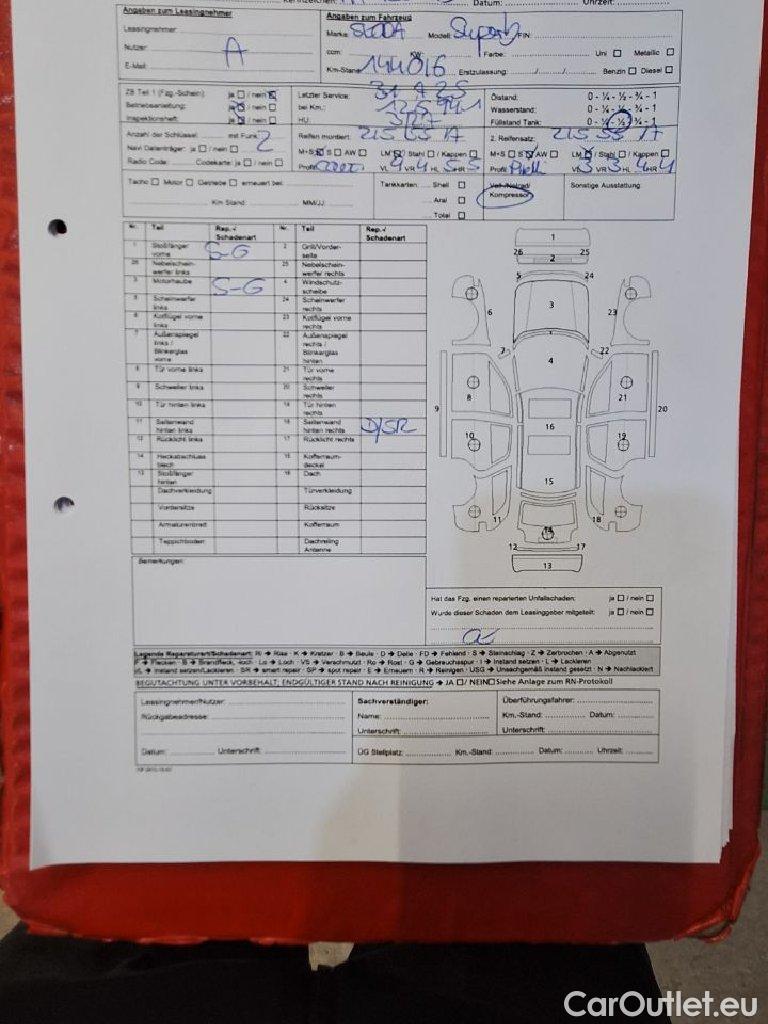 Angaben zum Leasingnehmer
Leasingnehmer:
Nutzer: A
E-Mail:
Angaben zum Fahrzeug
Marke: SKODA Modell: Superb FIN:
ccm: KW: Farbe: Uni Metallic
Km-Stand: 144016 Erstzulassung: Benzin Diesel
ZB Teil 1 (Fzg.-Schein): ja / nein
Betriebsanleitung: ja / nein
Inspektionsheft: ja / nein
Letzter Service:
bei Km.:
HU:
Ölstand: 0 - ¼ - ½ - ¾ - 1
Wasserstand: 0 - ¼ - ½ - ¾ - 1
Füllstand Tank: 0 - ½ - ¾ - 1
Anzahl der Schlüssel: mit Funk: 2
Navi Datenträger: ja / nein
Radio Code: Codekarte: ja / nein
Reifen montiert: 215 55 17
M+S S AW LM / Stahl / Kappen
Profil: VL 4 VR 4 HL 5 HR 5
2. Reifensatz: 215 55 17
M+S S AW LM / Stahl / Kappen
Profil: VL 3 VR 3 HL 4 HR 4
Tacho Motor Getriebe erneuert bei:
Km Stand MM/JJ
Tankkarten Shell
Aral
Total
Kompressor
Sonstige Ausstattung:
Nr. Teil Rep.-/ Schadenart Nr. Teil Rep.-/ Schadenart
1 Stoßfänger vorne S-G 2 Grill/Vorder-seite
26 Nebelschein-werfer links 25 Nebelschein-werfer rechts
3 Motorhaube S-G 4 Windschutz-scheibe
5 Scheinwerfer links 24 Scheinwerfer rechts
6 Kotflügel vorne links 23 Kotflügel vorne rechts
7 Außenspiegel links / Blinkerglas vorne 22 Außenspiegel rechts / Blinkerglas hinten
8 Tür vorne links 21 Tür vorne rechts
9 Schweller links 20 Schweller rechts
10 Tür hinten links 19 Tür hinten rechts
11 Seitenwand hinten links 18 Seitenwand hinten rechts D/SR
12 Rücklicht links 17 Rücklicht rechts
14 Heckabschluss blech 15 Kofferraum-deckel
13 Stoßfänger hinten 16 Dach
Dachverkleidung Türverkleidung
Vordersitze Rücksitze
Armaturenbrett Kofferraum
Teppichboden Dachreling Antenne
1
26 25
2
5 24
3
6 23
7 22
4
8 21
9 20
16
10 19
15
11 18
14
12 17
13
Bemerkungen:
Hat das Fzg. einen reparierten Unfallschaden: ja / nein
Wurde dieser Schaden dem Leasinggeber mitgeteilt: ja / nein
Legende Reparaturart/Schadenart: Ri → Riss · K → Kratzer · B → Beule · D → Delle · FD → Fehlend · S → Steinschlag · Z → Zerbrochen · A → Abgenutzt
F → Flecken · B → Brandfleck, -loch · Lo → Loch · VS → Verschmutzt · Ro → Rost · G → Gebrauchsspur · I → Instand setzen · L → Lackieren
I/L → Instand setzen/Lackieren · SR → smart repair · SP → spot repair · E → Erneuern · R → Reinigen · USG → Unsachgemäß instand gesetzt · N → Nachlackiert
BEGUTACHTUNG UNTER VORBEHALT; ENDGÜLTIGER STAND NACH REINIGUNG → JA / NEIN Siehe Anlage zum RN-Protokoll
Leasingnehmer/Nutzer:
Rückgabeadresse:
Datum: Unterschrift:
Sachverständiger:
Name:
Unterschrift:
Überführungsfahrer:
Km.-Stand: Datum:
Unterschrift:
ÜG Stellplatz: Km.-Stand: Datum: Uhrzeit:
CarOutlet.eu